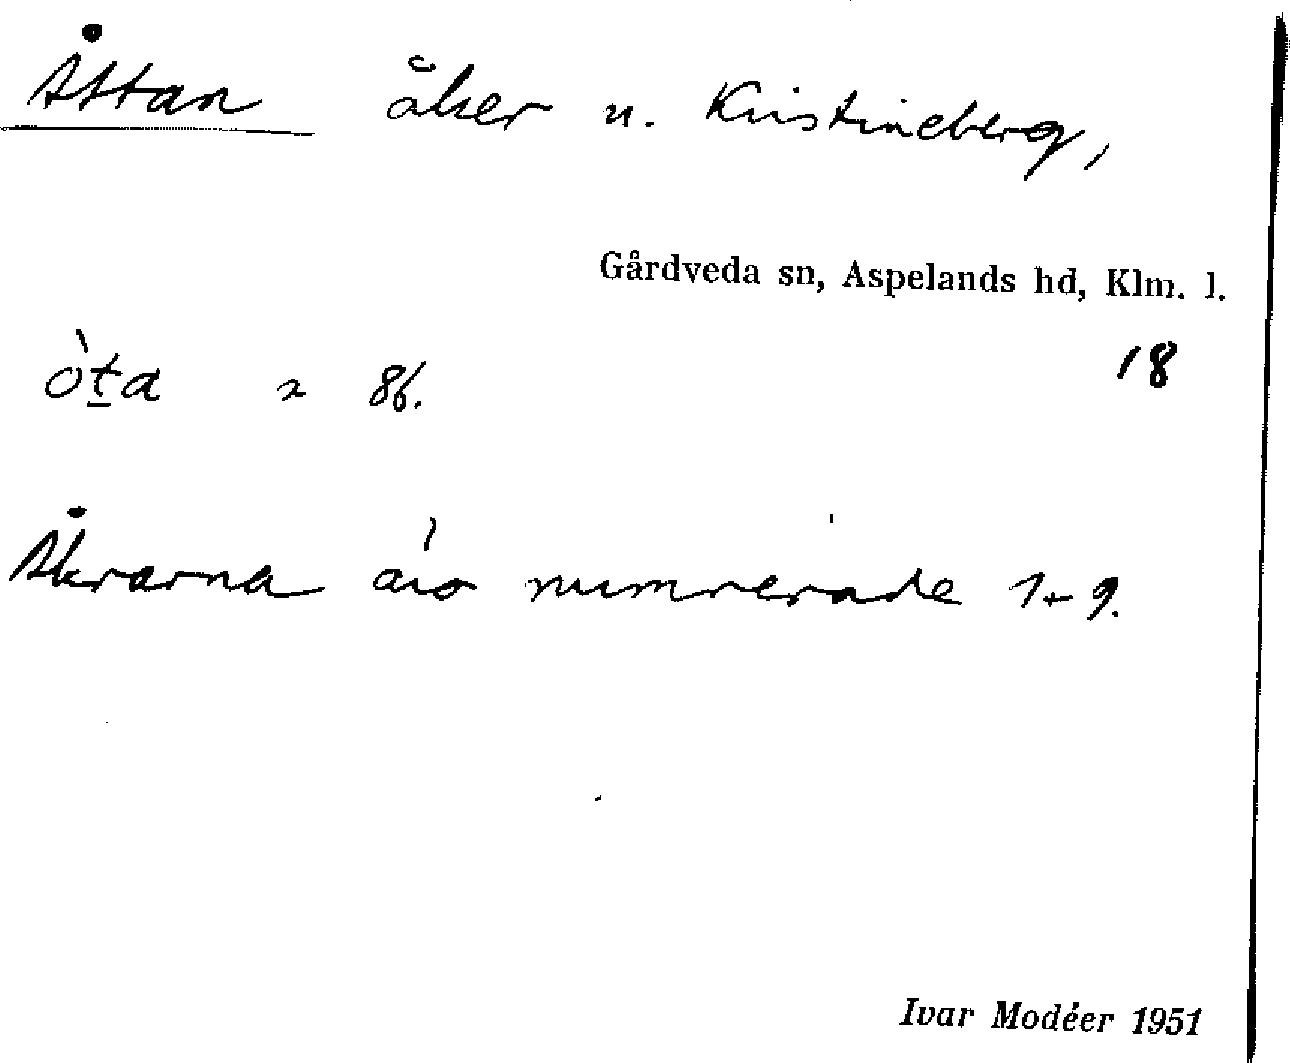 Åttan åker u. Kristineberg,
Gårdveda sn, Aspelands hd, Klm. l.
òt̲a 86. 18
Åkrarna äro numrerade 1-9.
Ivar Modéer 1951